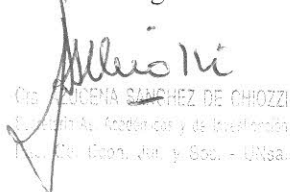 Cra. LUCENA SANCHEZ DE CHIOZZI
Secretaria As. Académicos y de Investigación
Fac. Cs. Econ. Jur. y Soc. - UNSa.